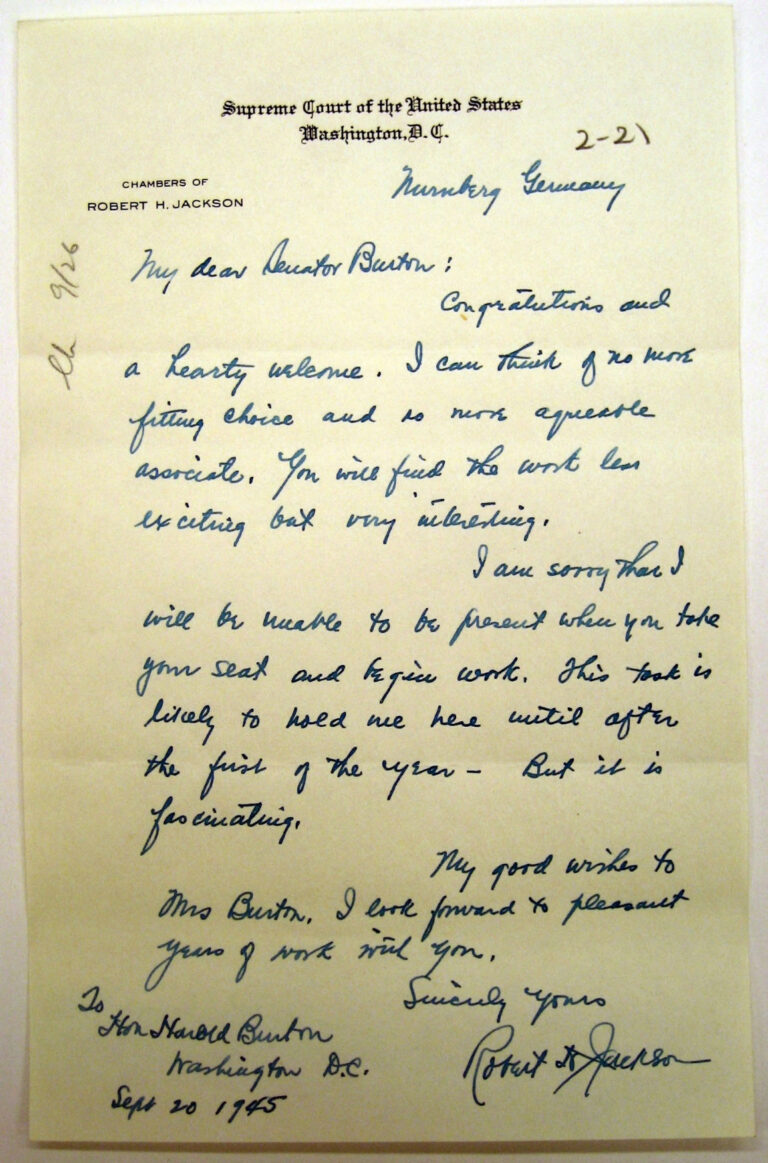 Supreme Court of the United States
Washington, D.C.
2-21
CHAMBERS OF
ROBERT H. JACKSON
Nurnberg Germany
My dear Senator Burton:
Congratutions and
a hearty welcome. I can think of no more
fitting choice and no more agreeable
associate. You will find the work less
exciting but very interesting.
I am sorry that I
will be unable to be present when you take
your seat and begin work. This task is
likely to hold me here until after
the first of the year — But it is
fascinating.
My good wishes to
Mrs Burton. I look forward to pleasant
years of work with you.
Sincerely Yours
Robert H Jackson
To
Hon Harold Burton
Washington D.C.
Sept 20 1945
9/26